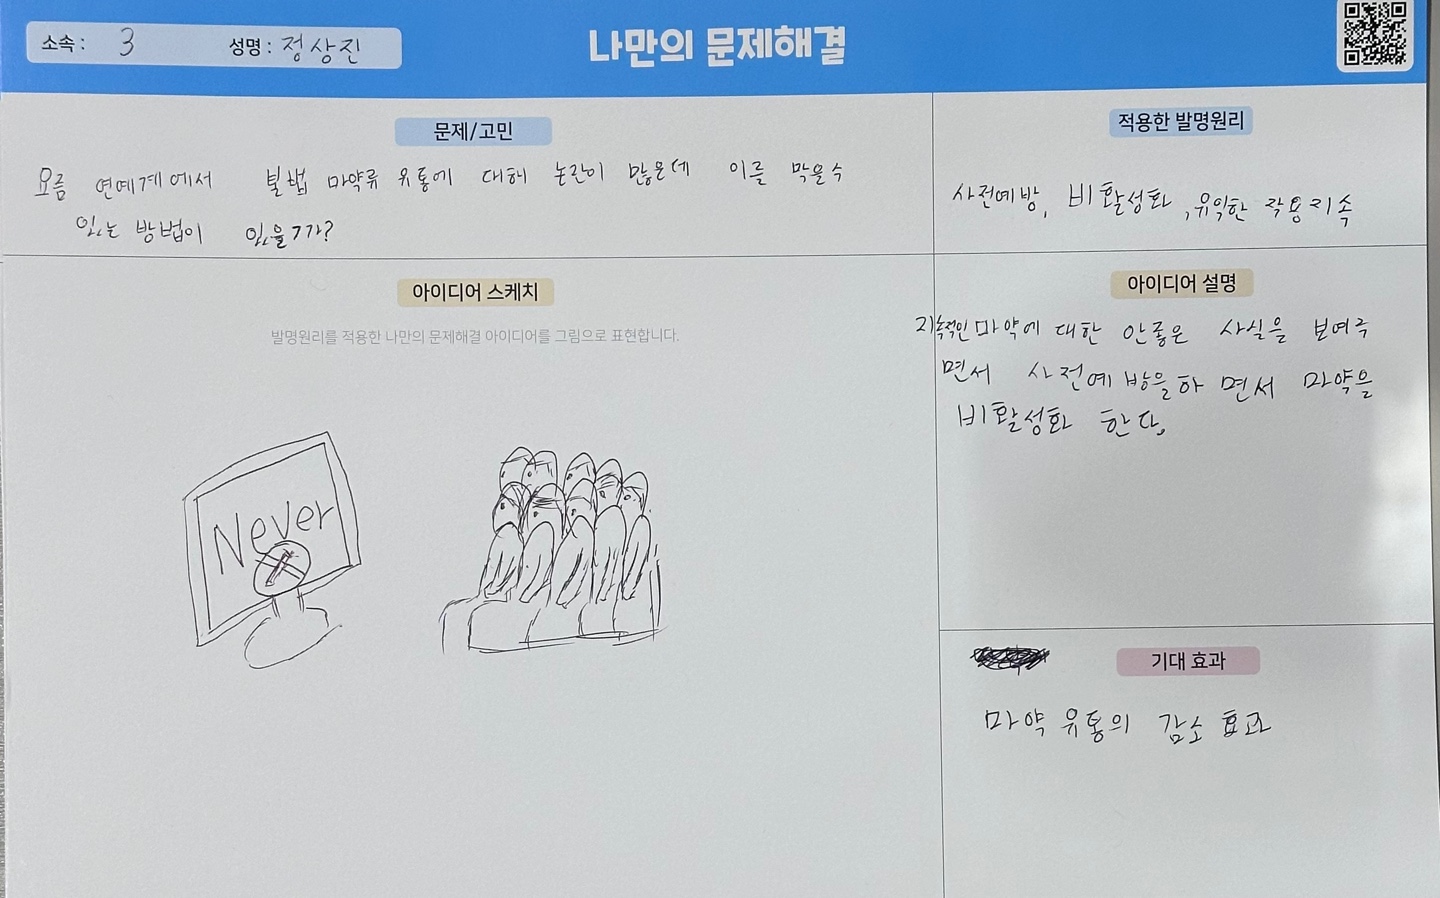 소속 : 3
성명 : 정상진
나만의 문제해결
문제/고민
요즘 연예계에서 불법 마약류 유통에 대해 논란이 많은데 이를 막을수
있는 방법이 있을까?
적용한 발명원리
사전예방, 비활성화, 유익한 작용지속
아이디어 스케치
발명원리를 적용한 나만의 문제해결 아이디어를 그림으로 표현합니다.
Never
아이디어 설명
지속적인 마약에 대한 안좋은 사실을 보여주
면서 사전예방을하면서 마약을
비활성화 한다.
기대 효과
마약 유통의 감소 효과